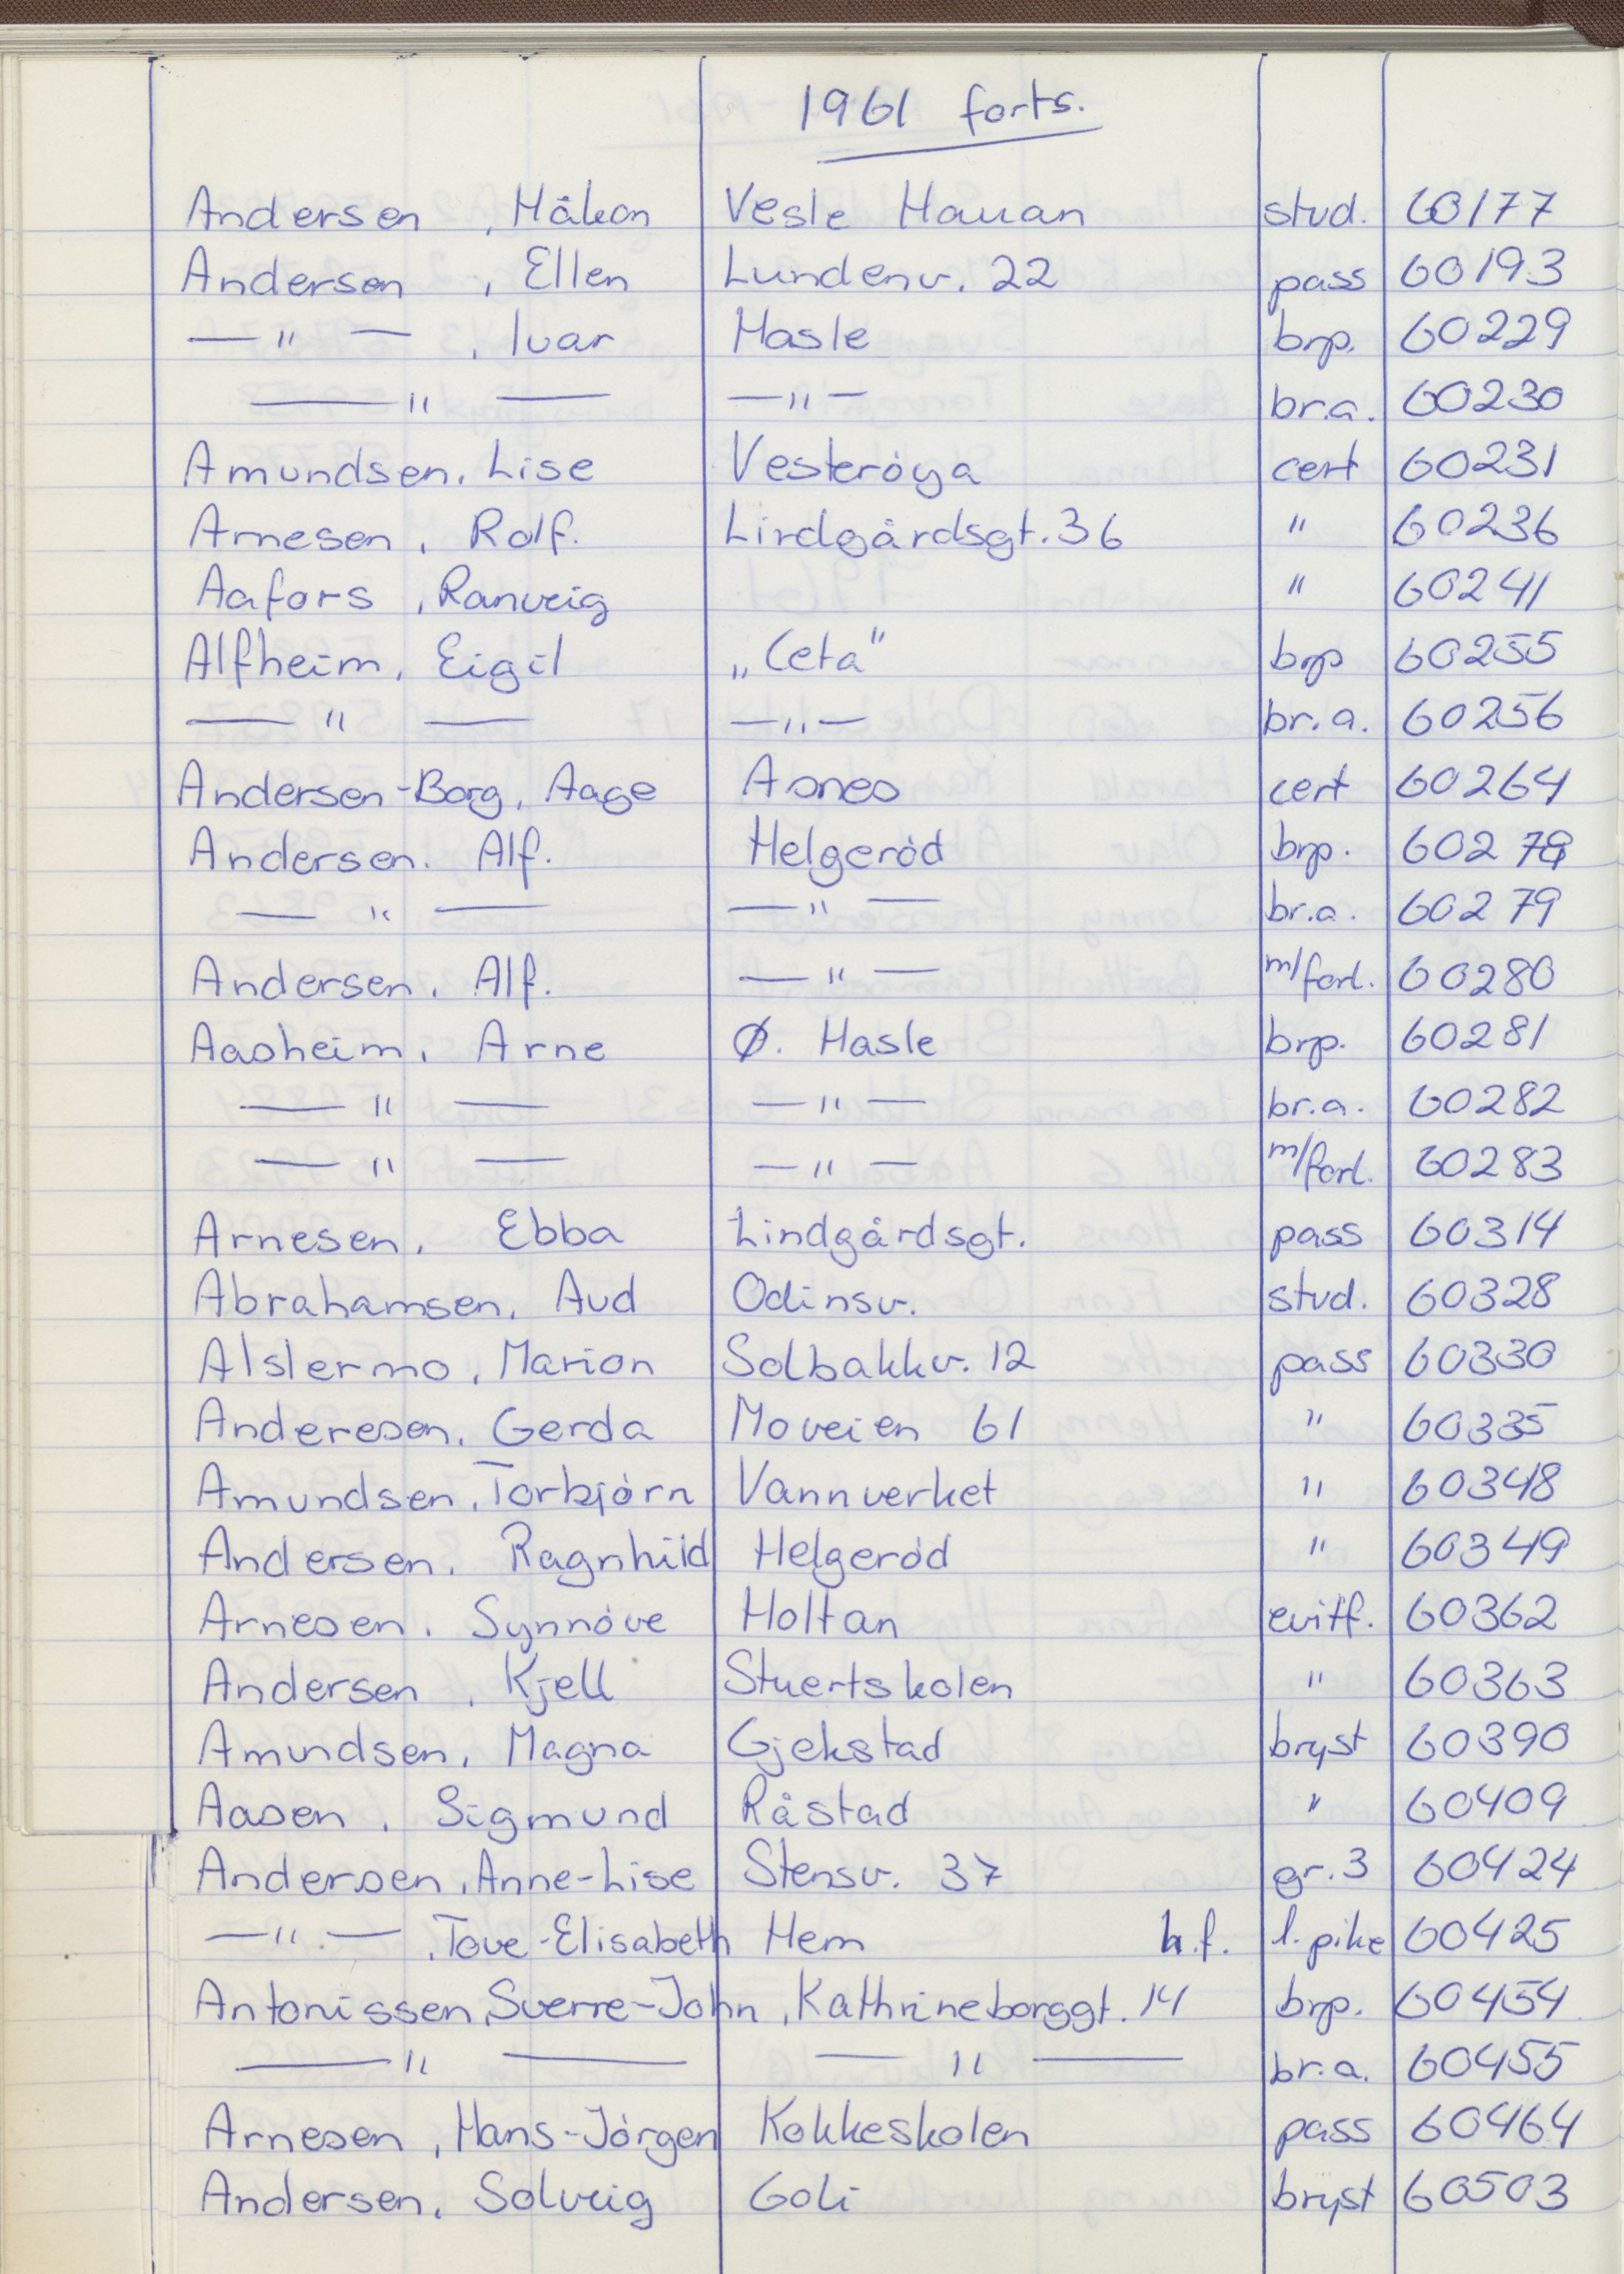 1961 forts.
Andersen, Håkon Vesle Hauan stud. 60177
Andersen, Ellen Lundenv. 22 pass 60193
— " —, Ivar Hasle brp. 60229
— " — — " — br.a. 60230
Amundsen, Lise Vesteröya cert 60231
Arnesen, Rolf. Lindgårdsgt. 36 " 60236
Aafors, Ranveig " 60241
Alfheim, Eigil „Ceta" brp 60255
— " — — " — br.a. 60256
Andersen-Borg, Aage Asnes cert 60264
Andersen. Alf. Helgeröd brp. 60278
— " — — " — br.a. 60279
Andersen, Alf. — " — m/forl. 60280
Aasheim, Arne Ø. Hasle brp. 60281
— " — — " — br.a. 60282
— " — — " — m/forl. 60283
Arnesen, Ebba Lindgårdsgt. pass 60314
Abrahamsen, Aud Odinsv. stud. 60328
Alslermo, Marion Solbakkv. 12 pass 60330
Anderesen, Gerda Moveien 61 " 60335
Amundsen, Torbjörn Vannverket " 60348
Andersen, Ragnhild Helgeröd " 60349
Arnesen, Synnöve Holtan evitf. 60362
Andersen, Kjell Stuertskolen " 60363
Amundsen, Magna Gjekstad bryst 60390
Aasen, Sigmund Råstad " 60409
Andersen, Anne-Lise Stensv. 37 gr. 3 60424
— " —, Tove-Elisabeth Hem h.f. l. pike 60425
Antonissen, Sverre-John, Kathrineborggt. 14 brp. 60454
— " — — " — br.a. 60455
Arnesen, Hans-Jörgen Kokkeskolen pass 60464
Andersen, Solveig Goli bryst 60503